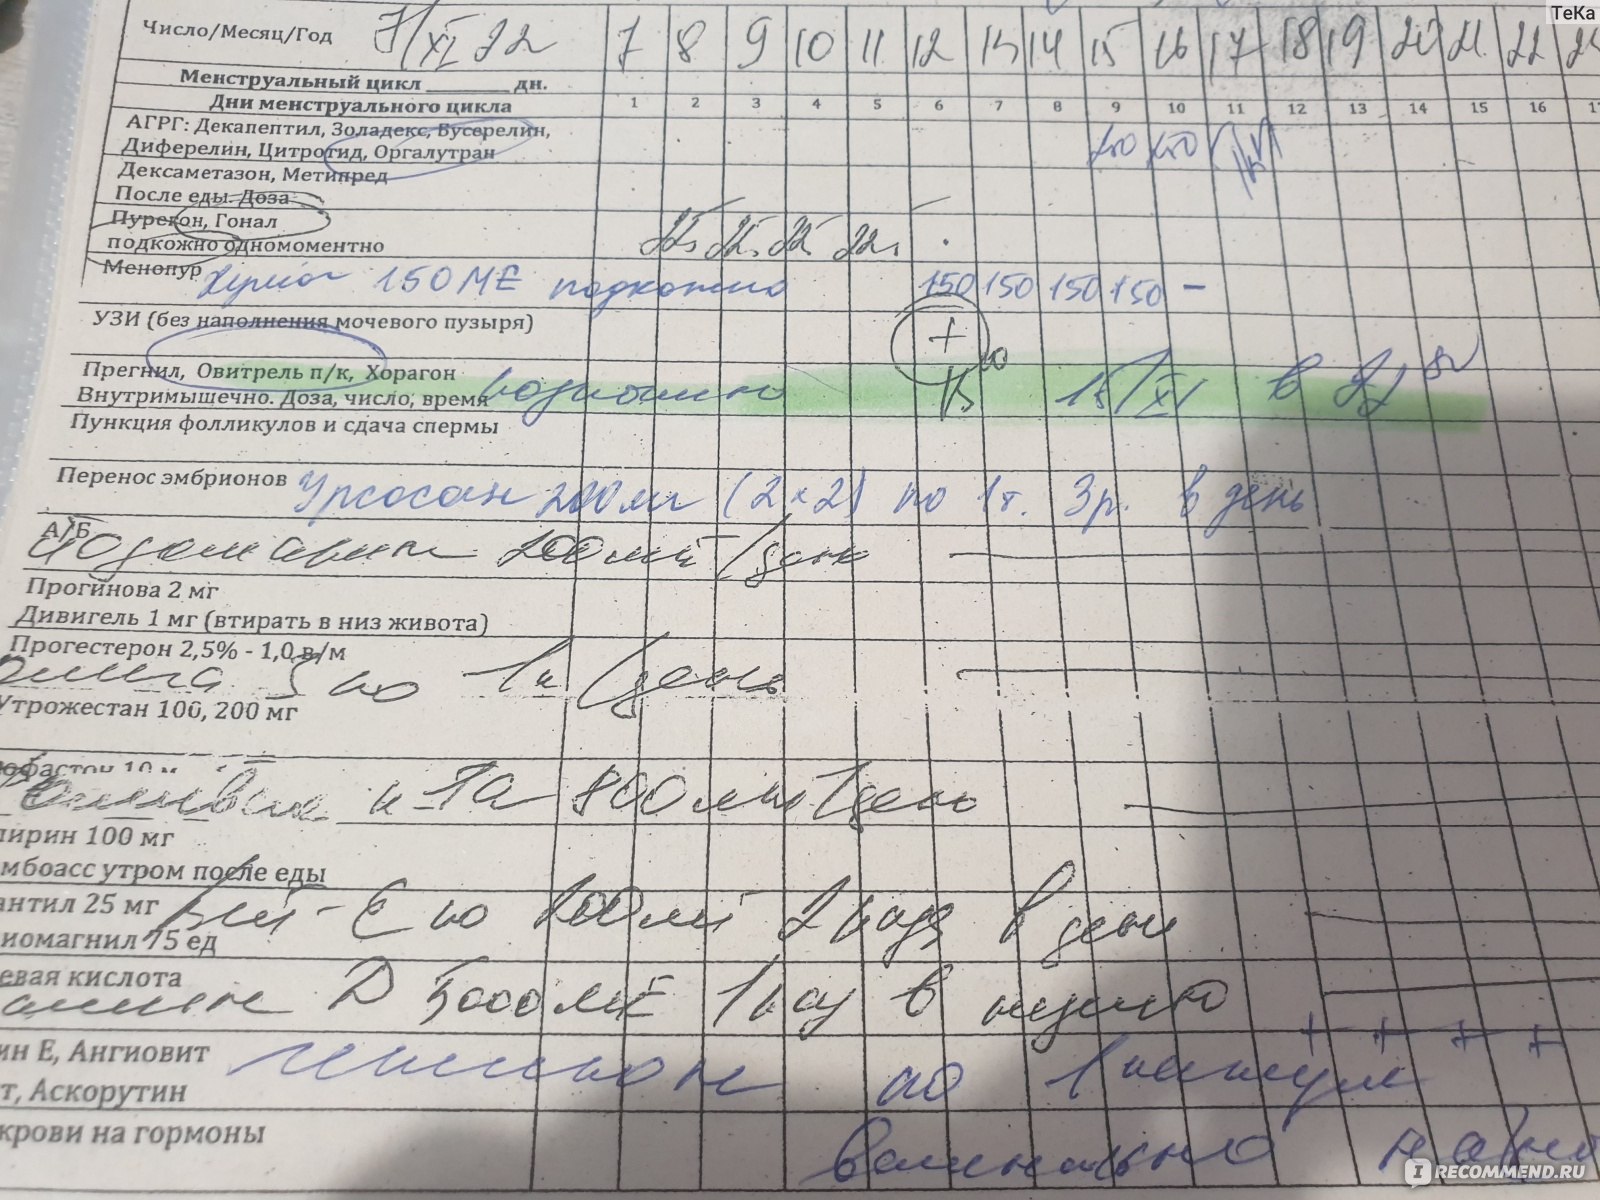 ТеКа
Число/Месяц/Год 7/XI 22 7 8 9 10 11 12 13 14 15 16 17 18 19 20 21 22 23
Менструальный цикл ________ дн.
Дни менструального цикла 1 2 3 4 5 6 7 8 9 10 11 12 13 14 15 16 17
АГРГ: Декапептил, Золадекс, Бусерелин,
Диферелин, Цитротид, Оргалутран
Дексаметазон, Метипред
После еды. Доза
Пурегон, Гонал
подкожно одномоментно
Менопур 150 МЕ подкожно 150 150 150 150 –
УЗИ (без наполнения мочевого пузыря) +
Прегнил, Овитрель п/к, Хорагон
Внутримышечно. Доза, число, время 15/XI в
Пункция фолликулов и сдача спермы
Перенос эмбрионов Урсосан 200 мг (2×2) по 1т. 3р. в день
А/Б
Йодомарин 200мкг/день
Прогинова 2 мг
Дивигель 1 мг (втирать в низ живота)
Прогестерон 2,5% - 1,0 в/м
омега 3 по 1к/день
Утрожестан 100, 200 мг
офастон 10 м
к-та 800мкг/день
пирин 100 мг
мбоасс утром после еды
антил 25 мг
Вит-Е по 200мг 2 в день
иомагнил 75 ед
евая кислота
Д 5000МЕ 1 в неделю
ин Е, Ангиовит
по 1 капсуле
т, Аскорутин
крови на гормоны
вагинально на ночь
IRECOMMEND.RU